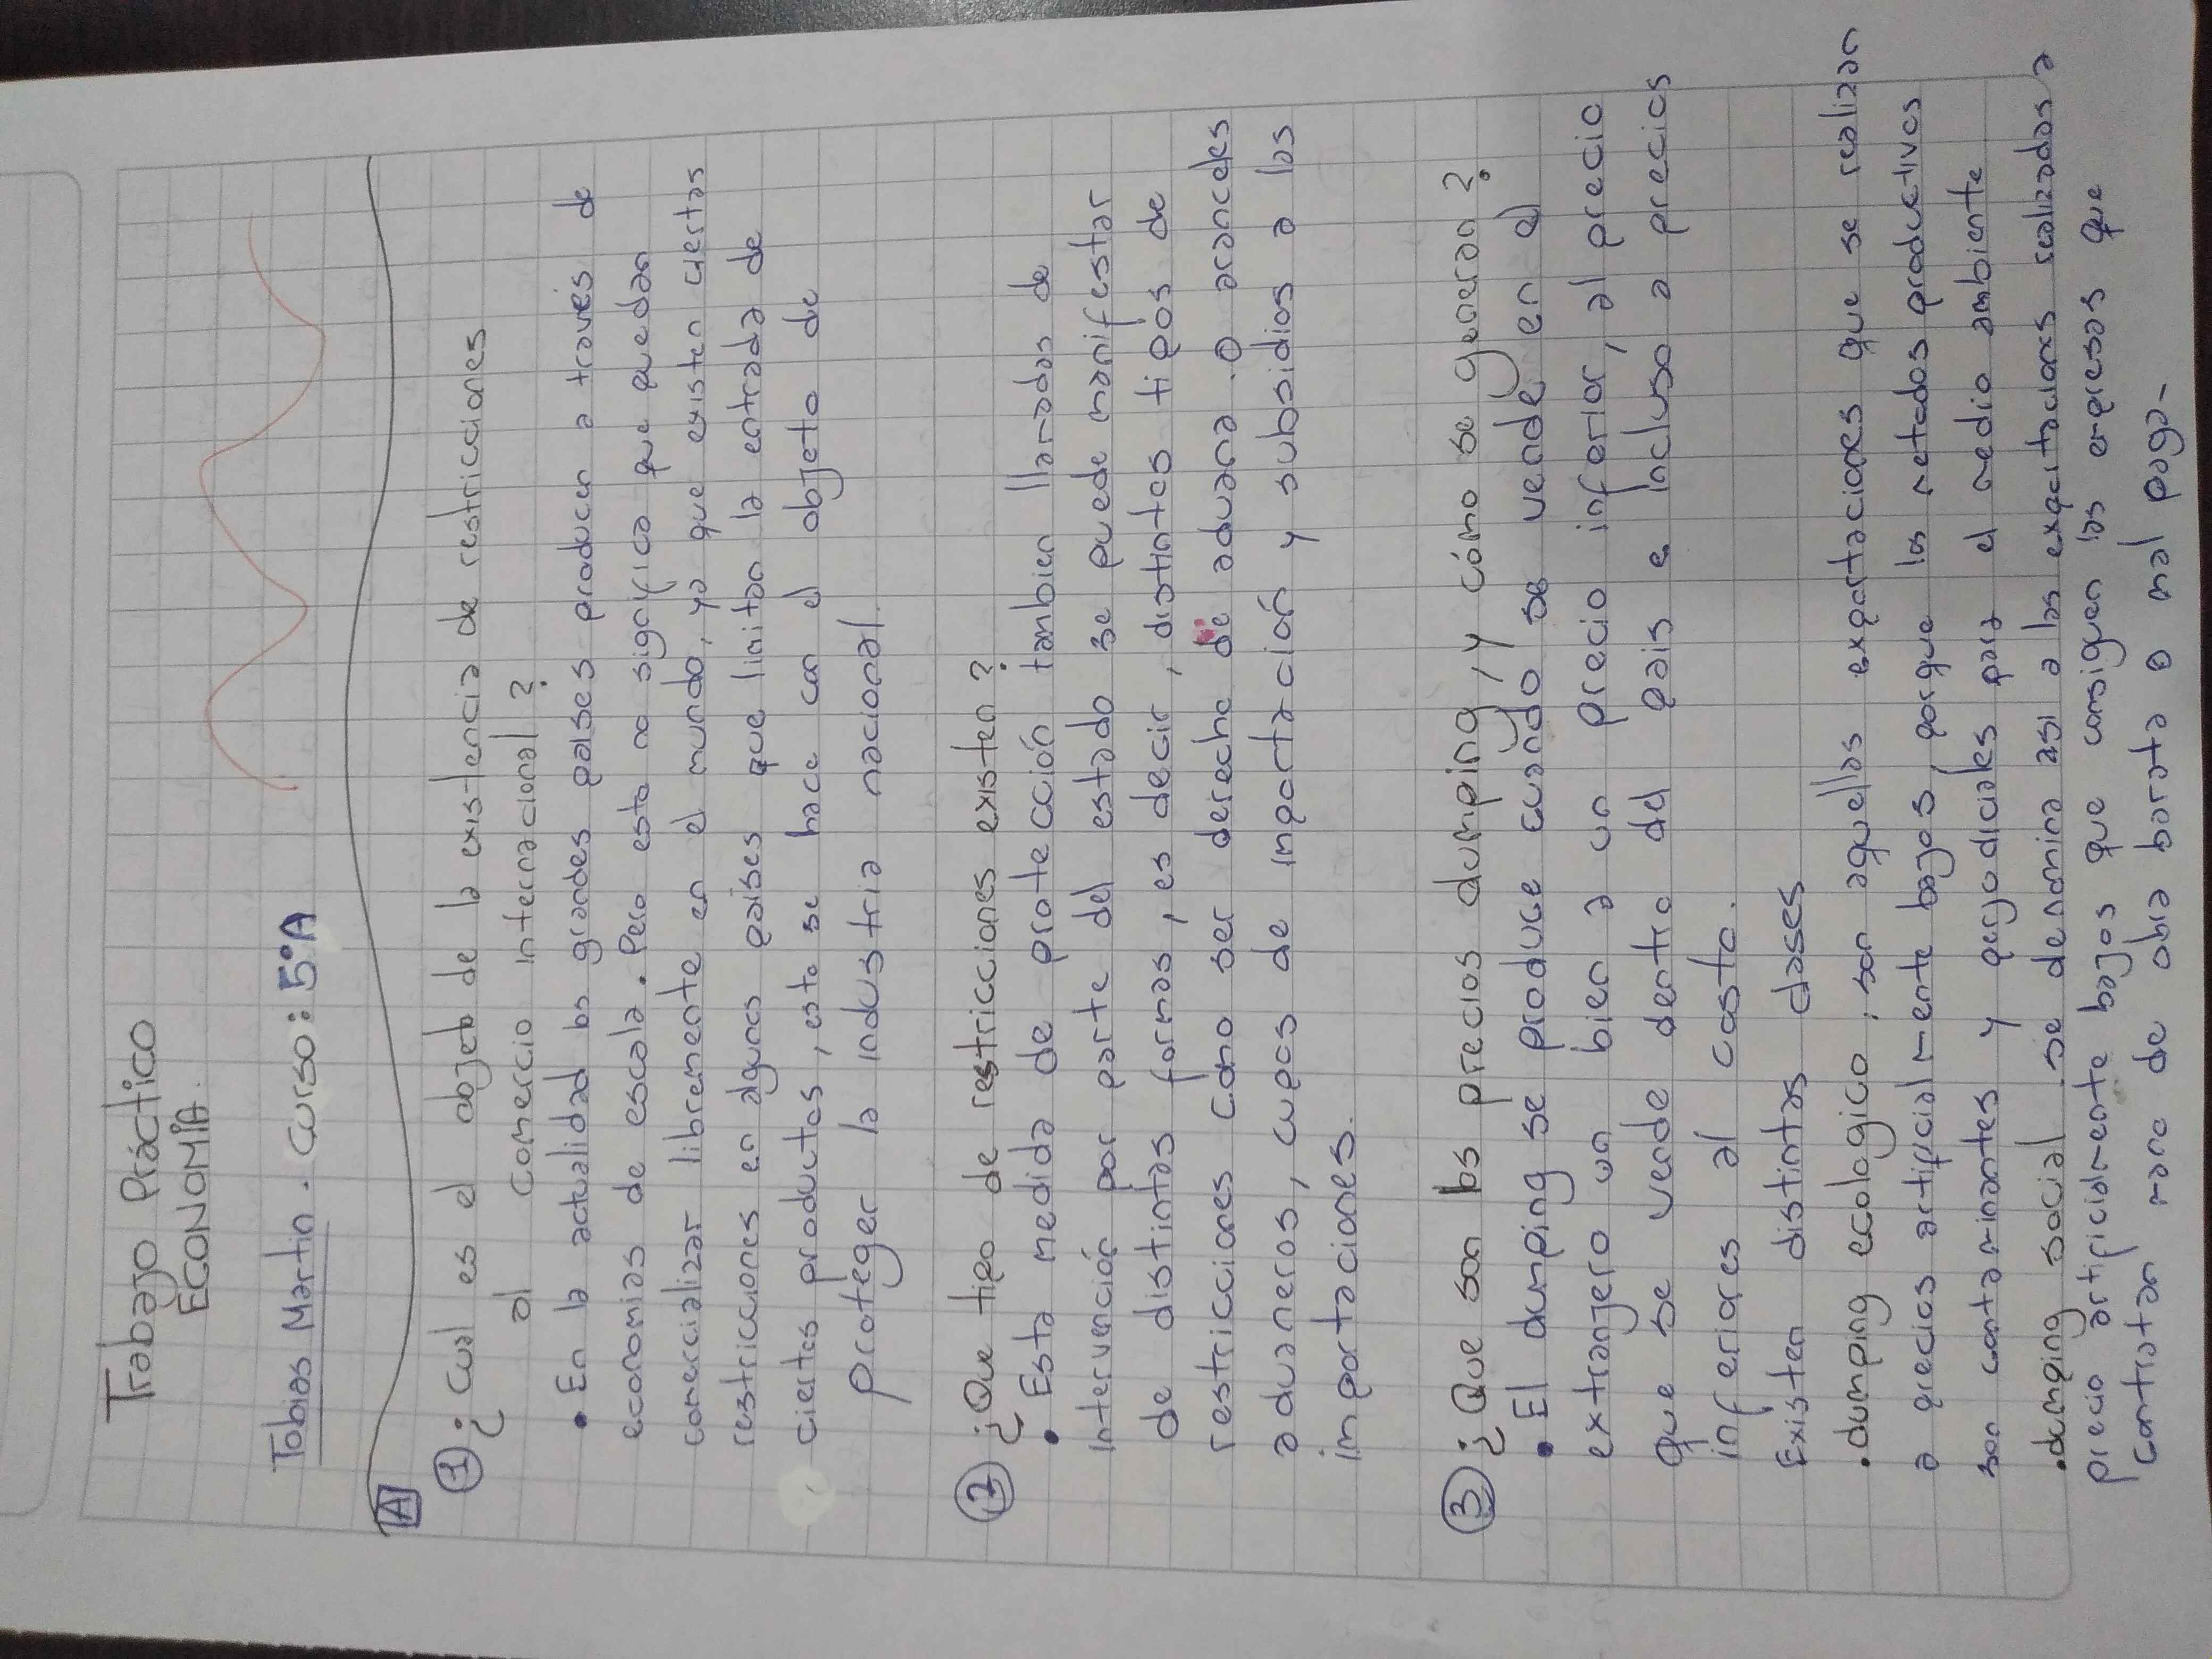 Trabajo Práctico
ECONOMÍA.
Tobias Martin. Curso: 5°A
A
① ¿Cual es el objeto de la existencia de restricciones
al comercio internacional?
• En la actualidad los grandes países producen a través de
economias de escala. Pero esto no significa que puedan
comercializar libremente en el mundo, ya que existen ciertas
restricciones en algunos paises que limitan la entrada de
ciertos productos, esto se hace con el objeto de
proteger la industria nacional.
② ¿Que tipo de restricciones existen?
• Esta medida de protección tambien llamadas de
intervención por parte del estado se puede manifestar
de distintas formas, es decir, distintos tipos de
restricciones como ser derecho de aduana o aranceles
aduaneros, cupos de importación y subsidios a las
importaciones.
③ ¿Que son los precios dumping, y cómo se generan?
• El dumping se produce cuando se vende en el
extranjero un bien a un precio inferior, al precio
que se vende dentro del pais e incluso a precios
inferiores al costo.
Existen distintas clases
• dumping ecologico, son aquellas exportaciones que se realizan
a precios artificialmente bajos, porque los metodos productivos
son contaminantes y perjudiciales para el medio ambiente
• dumping social se denomina asi a las exportaciones realizadas a
precio artificialmente bajos que consiguen las empresas que
contratan mano de obra barata o mal paga-